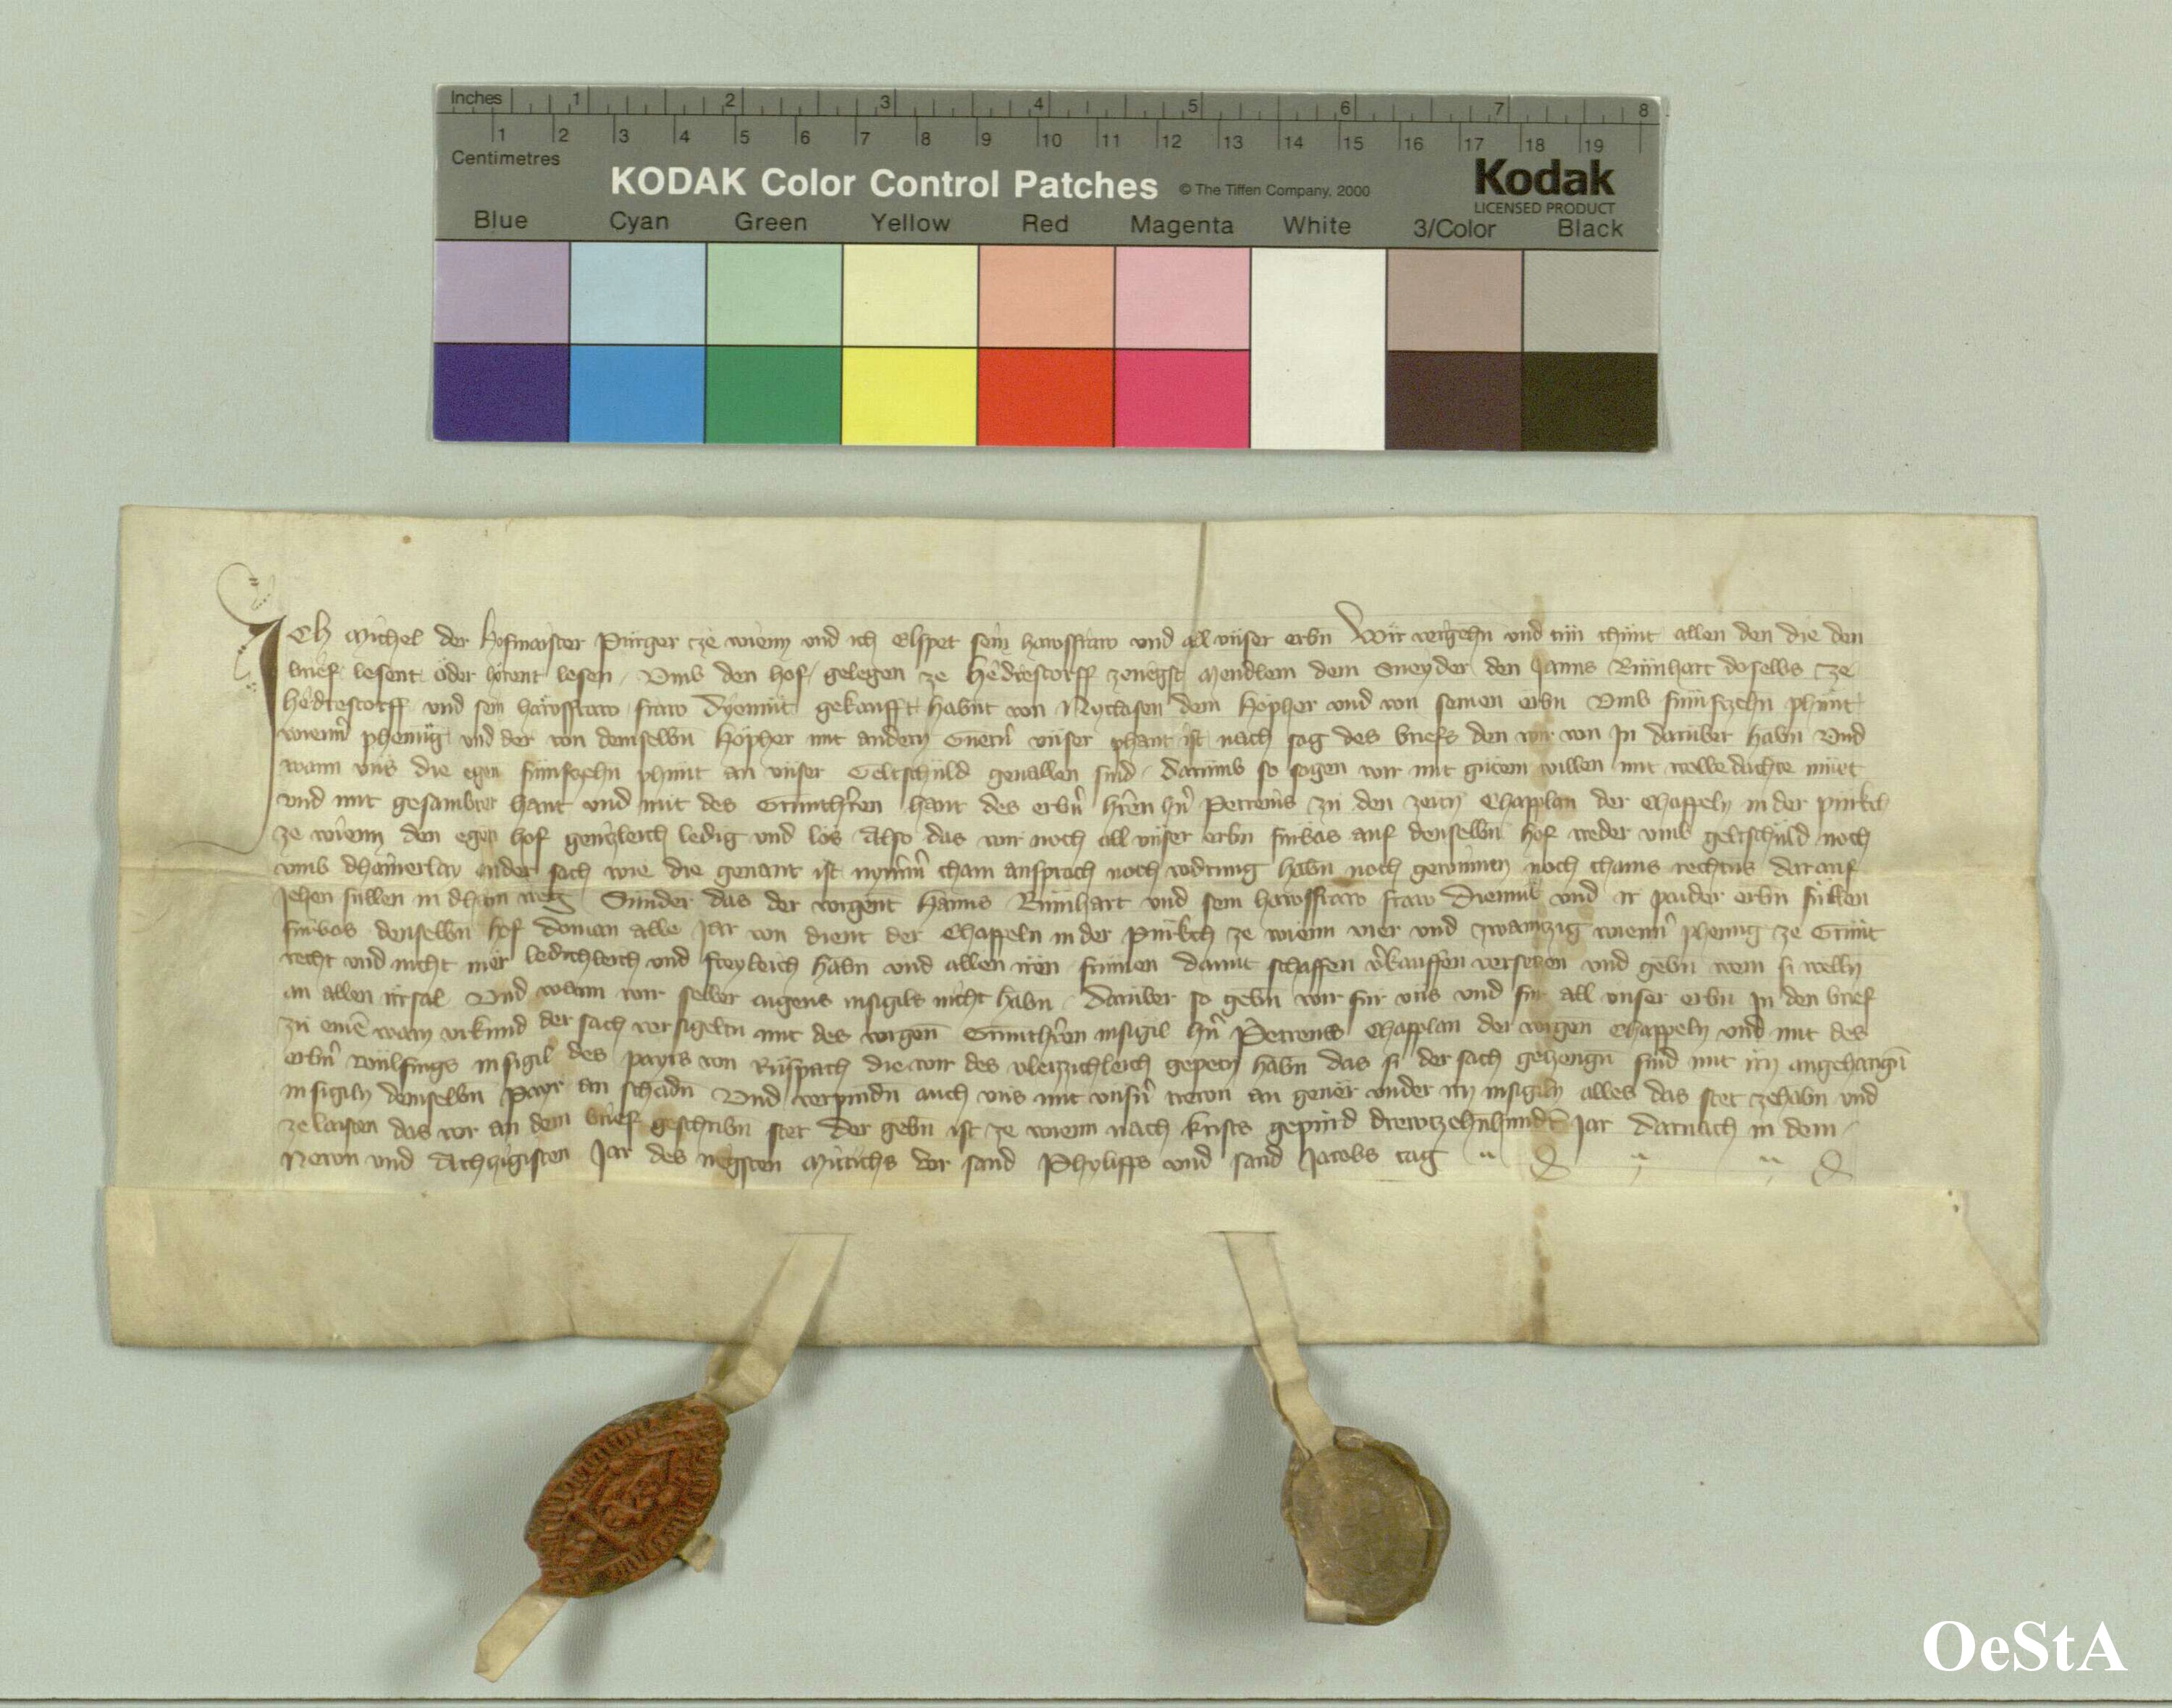 Inches 1 2 3 4 5 6 7 8
1 2 3 4 5 6 7 8 9 10 11 12 13 14 15 16 17 18 19
Centimetres
KODAK Color Control Patches © The Tiffen Company, 2000 Kodak
LICENSED PRODUCT
Blue Cyan Green Yellow Red Magenta White 3/Color Black
Ich Michel der Hofmaister Purger ze wienn und ich Elspet sein hawsfraw und all unser erbn Wir vergehn und tun chunt allen den die den
brief lesent oder horent lesen Umb den hof gelegen ze Hedrestorff zenegst Mendlein dem Sneyder den Janns Reinhart doselbs ze
Hedrestorff und sein hawsfraw fraw Dyemut gekaufft habnt von Nyclasen dem Hopher und von seinen erbn Umb funfzehn phunt
wienner phennig und der von demselbn Hopher mit andern Guetern unser phant ist nach sag des briefs den wir von In daruber habn Und
wann uns die egen funfzehn phunt an unser Geltschuld geuallen sind darumb so sagen wir mit gutem willen mit wolbedachte muet
und mit gesambter hant und mit des Grunthren hant des erbn hren hern Petreins zu den zeitn Chapplan der Chappeln in der purkch
ze wienn den egen hof genczleich ledig und los Also das wir noch all unser erbn furbas auf denselbn hof weder umb geltschuld noch
umb dhainerlay ander sach wie die genant ist nymer chain ansprach noch vodrung habn noch gewinnen noch chains rechtns darauf
Jehen sullen in dhain weg Sunder das der vorgent Hanns Reinhart und sein hawsfraw fraw Diemut und ir paider erbn sullen
furbas denselbn hof doman alle Jar von dient der Chappeln in der Purkch ze wienn vier und zwainczig wienner phennig ze Grunt
recht und nicht mer ledichleich und freyleich habn und allen iren frumen damit schaffen verkauffen versetzen und gebn wem si welln
an allen irrsal Und wann wir selber aigens insigils nicht habn Daruber so gebn wir fur uns und fur all unser erbn In den brief
zu einem warn urkund der sach versigeltn mit des vorgen Grunthren insigil hern Petreins Chapplan der vorgen Chappeln und mit des
erbn Wulfings insigil des payrs von Ruspach die wir des vleizzichleich gepetn habn das si der sach geczeugn sind mit irn angehangn
insigiln demselbn Payr an schadn Und verpindn auch uns mit unsern trewn an geuer under irn insigiln alles das stet zehabn und
ze laisten das vor an dem brief geschribn stet Der gebn ist ze wienn nach Krists gepurd drewtzehnhundert Jar darnach in dem
Newn und Achzigisten Jar des negsten Mitichs vor sand Phylipps und sand Jacobs tag
OeStA